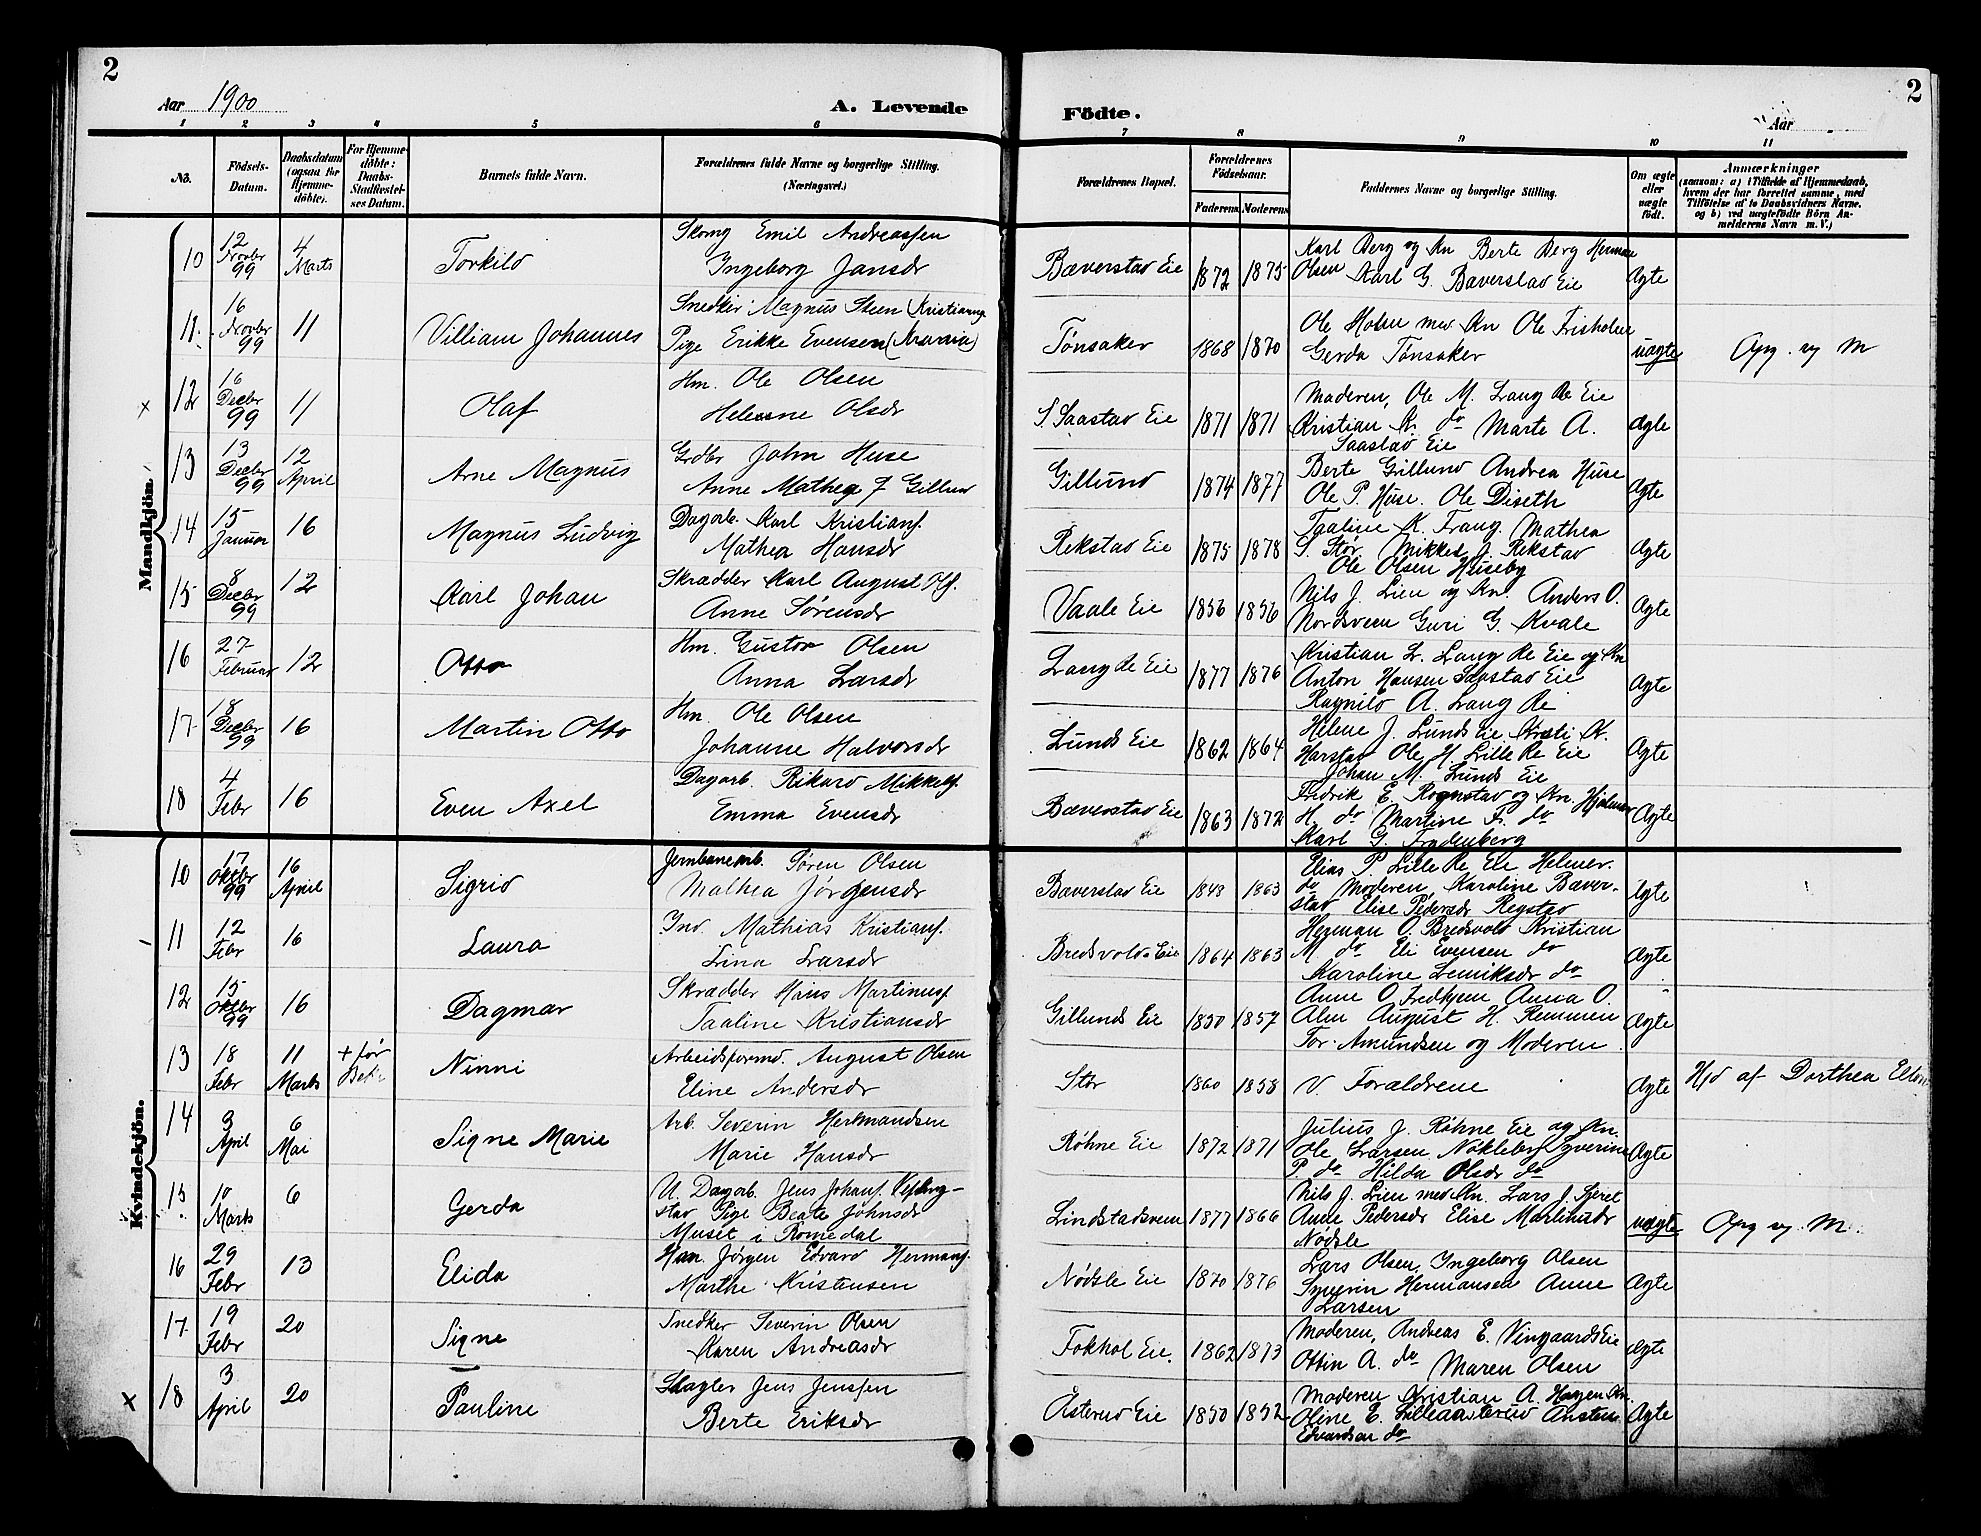 2
2
Aar 1900
A. Levende
Födte.
Aar
1 2 3 4 5 6 7 8 9 10 11
No.
Födsels-Datum.
Daabsdatum (ogsaa for Hjemmedöbte).
For Hjemmedöbte: Daabs-Stadfæstelses Datum.
Barnets fulde Navn.
Forældrenes fulde Navne og borgerlige Stilling. (Næringsvei.)
Forældrenes Bopæl.
Forældrenes Födselsaar.
Faderens Moderens
Faddernes Navne og borgerlige Stilling.
Om ægte eller uægte födt.
Anmærkninger
(saasom: a) i Tilfælde af Hjemmedaab, hvem der har forrettet samme, med Tilföielse af to Daabsvidners Navne. og b) ved uægtefödte Börn Anmelderens Navn m. V.)
Mandkjön.
10 12 Novbr 99 4 Marts Torkild Skomg Emil Andreassen
Ingeborg Jansdr Bæverstad Eie 1872 1875 Karl Berg og Kn Berte Berg Herman
Olsen Karl G. Bæverstad Eie Ægte
11 16 Novbr 99 11 Villiam Johannes Snedker Magnus Steen
Pige Erikke Evensen Tønsaker 1868 1870 Ole Moten med Kn Ole Frisholm
Gerda Tønsaker uægte Opg. og M
12 16 Decbr 99 11 Olaf Hm. Ole Olsen
Helene Olsdr S. Saastad Eie 1871 1871 Moderen, Ole M. Lang Re Eie
Kristian K. do Marte A.
Saastad Eie Ægte
13 13 Decbr 99 12 April Arne Magnus Grdbr John Huse
Anne Mathea J Gillund Gillund 1874 1877 Berte Gillund Andrea Huse
Ole P. Huse. Ole Diseth Ægte
14 15 Januar 16 Magnus Ludvig Dagarb. Karl Kristians.
Mathea Hansdr Rekstad Eie 1875 1878 Taaline K. Frang. Mathea
S. Stor Mikkel J. Rekstad
Ole Olsen Huseby Ægte
15 8 Decbr 99 12 Karl Johan Skrædder Karl August Ols.
Anne Sørensdr Vaale Eie 1856 1856 Nils J. Lien og Kn. Anders O.
Nordsveen Guri G. Kvale Ægte
16 27 Februar 12 Otto Hm. Gustav Olsen
Anna Larsdr Lang Re Eie 1877 1876 Kristian L. Lang Re Eie og Kn
Anton Hansen Saastad Eie
Ragnild A. Lang Re Ægte
17 18 Decbr 99 16 Martin Otto Hm. Ole Olsen
Johanne Halvorsdr Lunds Eie 1862 1864 Helene J. Lunds Eie Kristi K.
Harstad Ole H. Lille Re Eie
Johan M. Lunds Eie Ægte
18 4 Febr 16 Even Axel Dagarb. Rikard Mikkels.
Emma Evensdr Bæverstad Eie 1863 1872 Fredrik E. Rognstad og Kn Hjalmar
H. do Martine F. do
Karl G. Frydenberg Ægte
Kvindekjön.
10 17 Oktbr 99 16 April Sigrid Jernbanearb. Søren Olsen
Mathea Jørgensdr Bæverstad Eie 1848 1863 Elias P. Lille Re Eie Helmer
do Moderen, Karoline Bæver-
stad Elise Pedersdr Regstad Ægte
11 12 Febr 16 Laura Ind. Mathias Kristians.
Lina Larsdr Bredsvolds Eie 1864 1863 Herman O. Bredsvold Kristian
M do Eli Evensen do
Karoline Lemiksdr do Ægte
12 15 Oktbr 99 16 Dagmar Skrædder Hans Martinus.
Taaline Kristiansdr Gillunds Eie 1850 1857 Anne O. Fredhjem Anna O.
Alm August H. Remmen
Tor Amundsen og Moderen Ægte
13 18 Febr 11 Marts + før Bek Ninni Arbeidsformd. August Olsen
Eline Andersdr Stor 1860 1858 V. Forældrene Ægte Hjd af Dorthea
14 3 April 6 Mai Signe Marie Arb. Severin Hermandsen
Marie Hansdr Røhne Eie 1872 1871 Julius J. Røhne Eie og Kn.
Ole Larsen Nøkleby Syverine
P. do Hilda Olsdr do Ægte
15 10 Marts 6 Gerda U. Dagarb. Jens Johans.
stad Pige Beate Johnsdr
Muset i Romedal Lindstadsveen 1877 1866 Nils J. Lien med Kn. Lars J. Sjeret
Anne Pedersdr Elise Martinusdr
Nødsle uægte Opg. og M.
16 29 Febr 13 Elida Han. Jørgen Edvard Hermans.
Marthe Kristensen Nødsle Eie 1870 1876 Lars Olsen, Ingeborg Olsen
Syverin Hermansen Anne
Larsen Ægte
17 19 Febr 20 Signe Snedker Severin Olsen
Karen Andreasdr Fokhol Eie. 1862 1873 Moderen, Andreas E. Vingaards Eie
Ottin A. do Maren Olsen Ægte
18 3 April 20 Pauline Slagter Jens Jenssen
Berte Eriksdr Åsterud Eie 1850 1852 Moderen Kristian A. Hagen Kn.
Oline E. Lilleaasterud
Edvardsen do Ægte